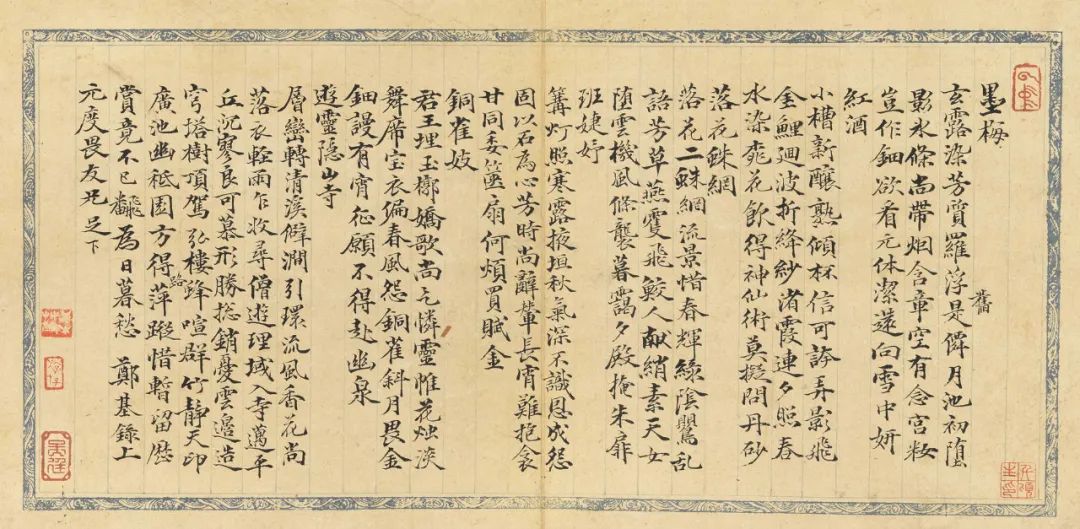 墨梅
玄露染芳質羅浮是僊月池初墮
影氷條尚帶烟含章空有念宮粧
豈作鈿欲看元体潔遠向雪中妍
舊
紅酒
小槽新釀熟傾杯信可誇弄影飛
金鯉迴波折絳紗渚霞連夕照春
水染桃花飲得神仙術莫擬問丹砂
落花蛛網
落花二蛛網流景惜春輝綠陰鶯乱
語芳草燕䨇飛鮫人献綃素天女
墮雲機風條襲暮靄夕殿掩朱扉
班婕妤
篝灯照寒露掖垣秋氣深不識恩成怨
固以石為心芳時尚辭輦長宵難抱衾
甘同委篋扇何煩買賦金
銅雀妓
君王埋玉槨嬌歌尚乞憐靈帷花燭淡
舞席宝衣偏春風怨銅雀斜月畏金
鈿謾有宵征願不得赴幽泉
遊靈隱山寺
層巒轉清溪僻澗引環流風香花尚
落衣輕雨乍收尋僧遊理域入寺邁平
丘沉寥良可慕形勝捴銷憂雲邉造
穹塔樹頂駕弘樓峰喧群竹靜天印
廣池幽秪園方得萍蹤惜暫留歷
路
賞竟不已飜為日暮愁 鄭基錄上
元度畏友兄足下